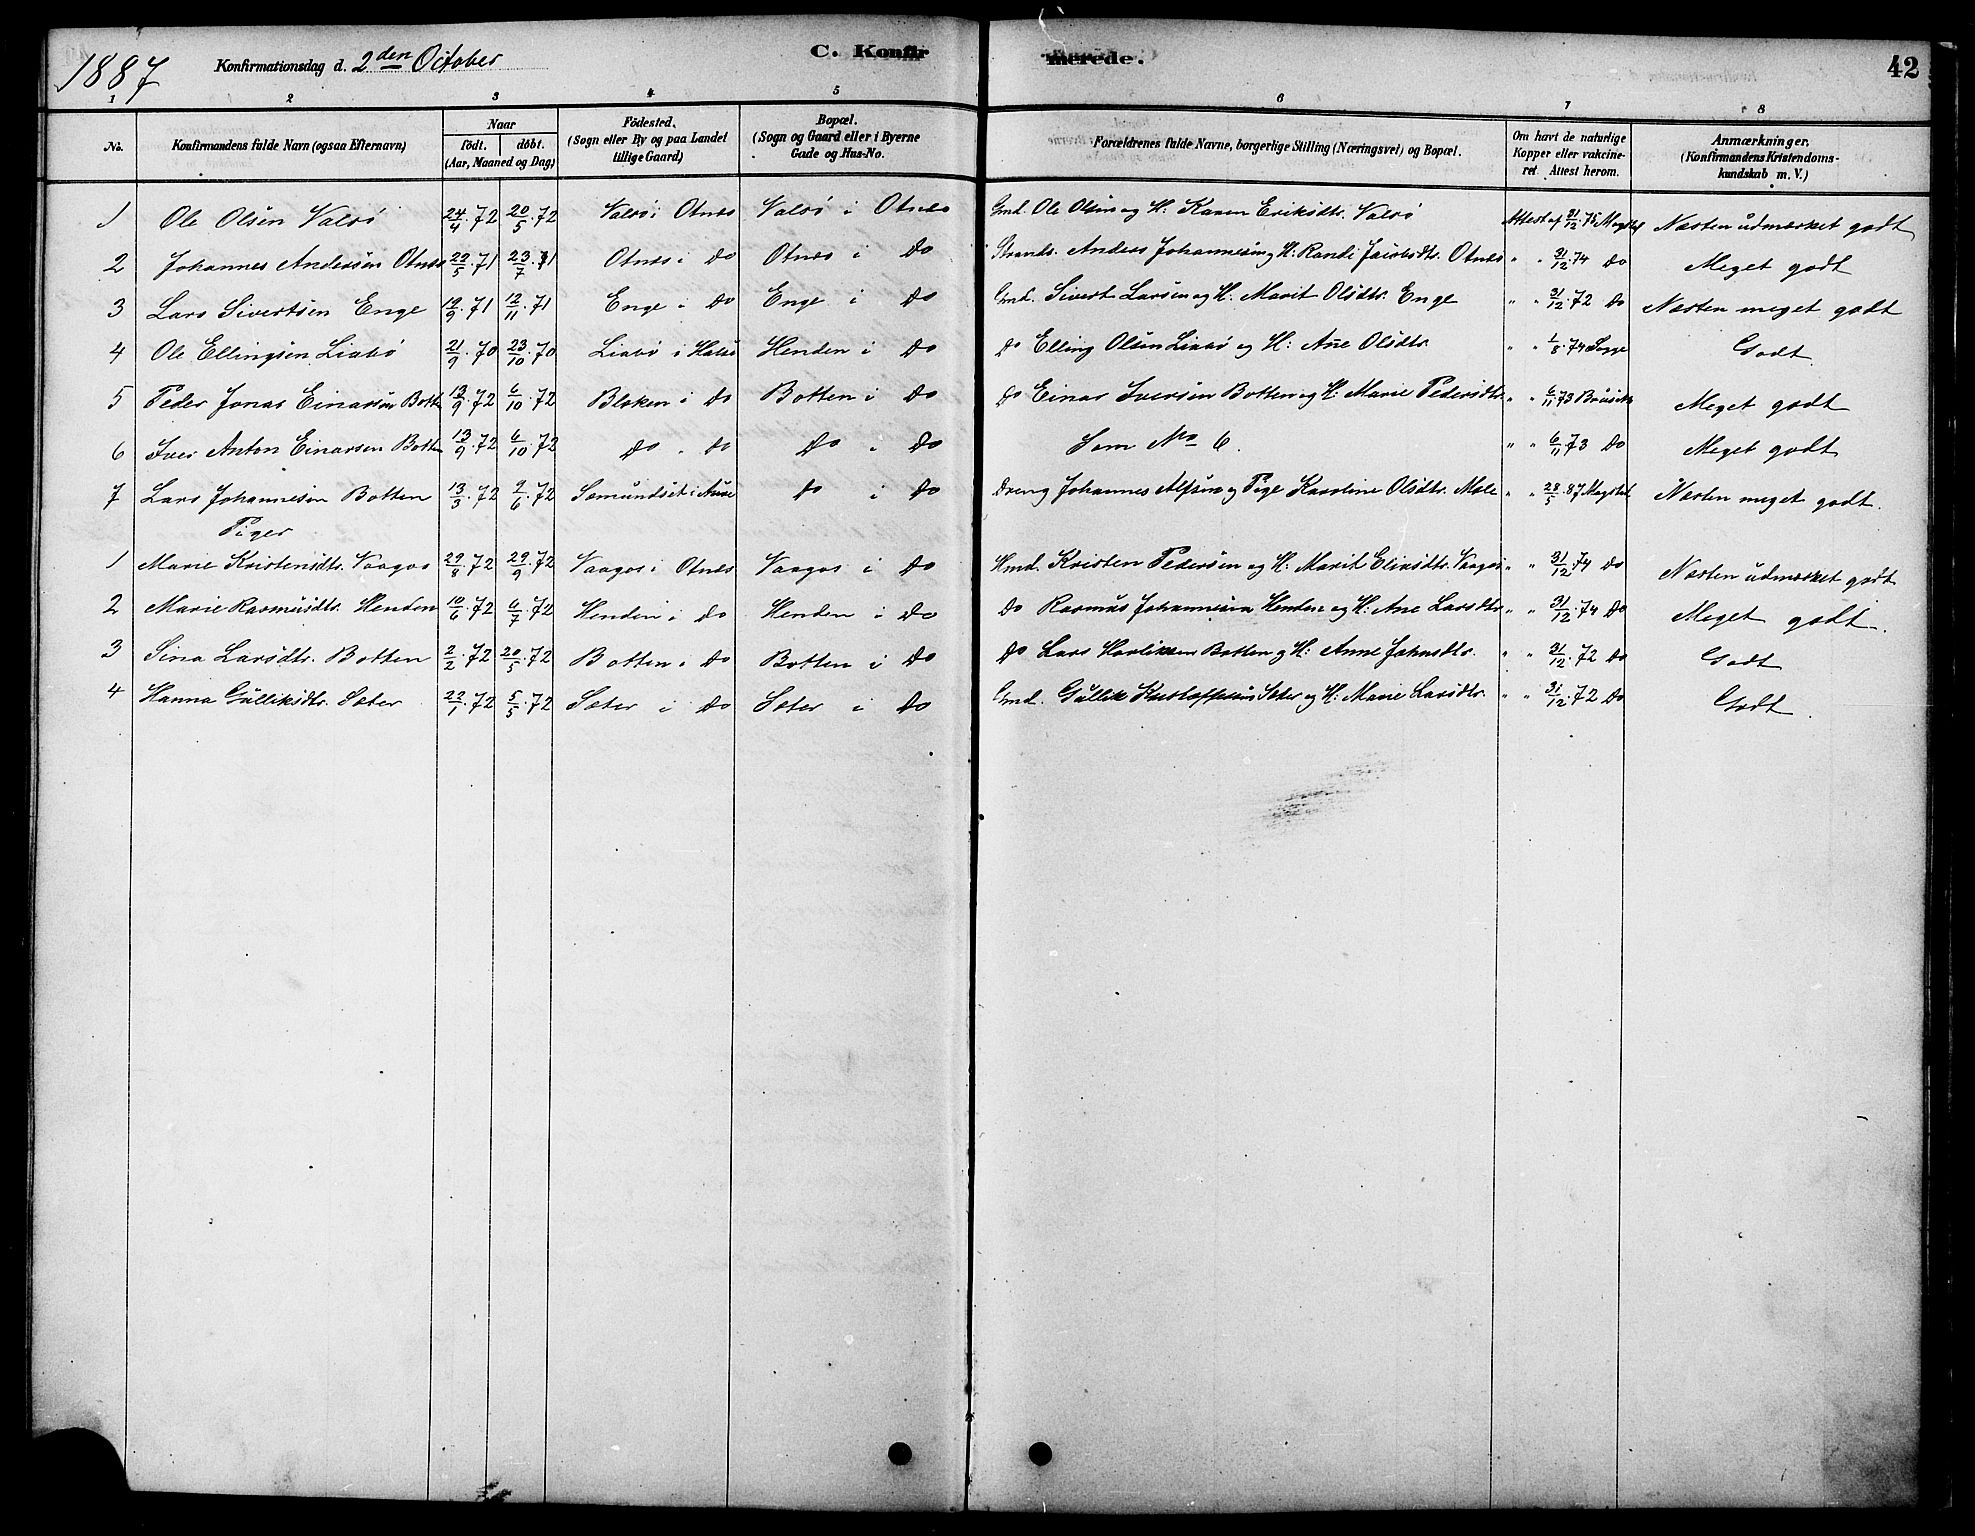 1887 Konfirmationsdag d. 2den October C. Konfirmerede. 42
1 2 3 4 5 6 7 8
No. Konfirmandens fulde Navn (ogsaa Efternavn) Naar födt. döbt. (Aar, Maaned og Dag) Födested. (Sogn eller By og paa Landet tillige Gaard) Bopæl. (Sogn og Gaard eller i Byerne Gade og Hus-No. Forældrenes fulde Navne, borgerlige Stilling (Næringsvei) og Bopæl. Om havt de naturlige Kopper eller vakcineret. Attest herom. Anmærkninger. (Konfirmandens Kristendomskundskab m. V.)
1 Ole Olsen Valsö 24/4.72 20/5.72 Valsö i Otnes Valsö i Otnes Gmd. Ole Olsen og H: Karen Eriksdtr. Valsö Attest af 31/12.75 Næsten udmærket godt
2 Johannes Andersen Otnes 22/5.71 23/7.71 Otnes i do Otnes i do Strands. Anders Johannesen og H: Randi Jacobsdtr. Otnes " " 31/12.74 do Meget godt
3 Lars Sivertsen Enge 19/9.71 12/11.71 Enge i do Enge i do Gmd. Sivert Larsen og H: Marit Olsdtr. Enge " " 31/12.72 do Næsten meget godt
4 Ole Ellingsen Liabö 21/9.70 23/10.70 Liabö i Halse Henden i do do Elling Olsen Liabö og H: Ane Olsdtr. " " 1/8.74 Godt
5 Peder Jonas Einarsen Botten 13/9.72 6/10.72 Bleken i do Botten i do do Einar Iversen Botten og H: Marie Pedersdtr. " " 6/11.73 Meget godt
6 Iver Anton Einarsen Botten 13/9.72 6/10.72 do " do do i do Som No 6. " " 6/11.73 do Meget godt
7 Lars Johannesen Botten 13/3.72 9/6.72 Semundset i Aure do i do Dreng Johannes Alfsen og Pige Karoline Olsdtr. Mele " " 28/5.87 Næsten meget godt.
Piger
1 Marie Kristensdtr. Vaagos 29/8.72 29/9.72 Vaagos i Otnes Vaagos i do Hmd. Kristen Pedersen og H: Marit Eliasdtr. Vaagos " " 31/12.74 do Næsten udmærket godt
2 Marie Rasmusdtr. Henden 10/6.72 6/7.72 Henden i do Henden i do do Rasmus Johannesen Henden og H: Ane Larsdtr. " " 31/12.74 do Meget godt.
3 Sina Larsdtr. Botten 2/2.72 20/5.72 Botten i do Botten i do do Lars Botten og H: Anne Johnsdtr. " " 31/12.72 do Godt
4 Hanna Gulliksdtr. Sæter 22/1.72 5/5.72 Sæter i do Sæter i do Gmd. Gullik Kristoffersen Sæter og H: Marie Larsdtr. " " 31/12.72 do Godt.